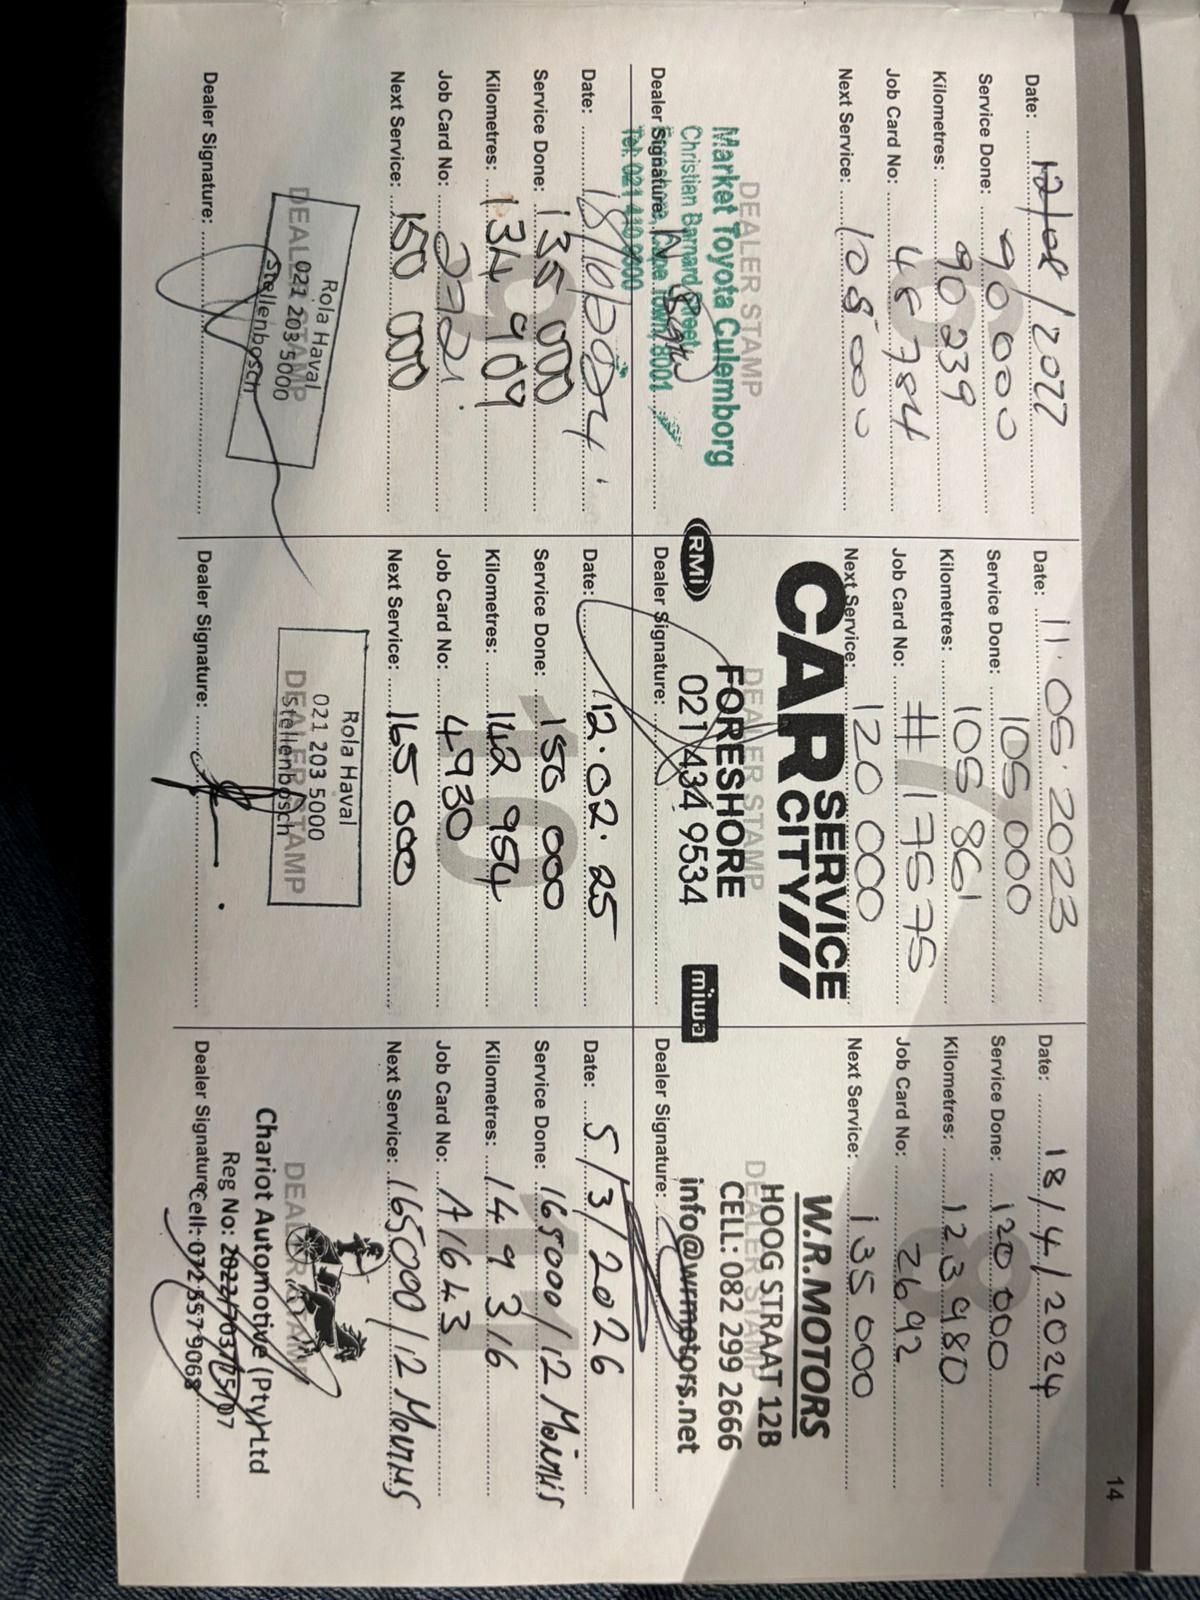 14
Date: 12/08/2022
Service Done: 90 000
Kilometres: 90 239
Job Card No: 48784
Next Service: 108 000
DEALER STAMP
Market Toyota Culemborg
Christian Barnard Street
Foreshore, Cape Town, 8001
Tel: 021 410 9200
Dealer Signature:
6
Date: 11.05.2023
Service Done: 105 000
Kilometres: 105 861
Job Card No: #17575
Next Service: 120 000
DEALER STAMP
CAR SERVICE CITY
FORESHORE
RMI 021 434 9534 miwa
Dealer Signature:
7
Date: 18/4/2024
Service Done: 120 000
Kilometres: 123 980
Job Card No: 2692
Next Service: 135 000
DEALER STAMP
W.R.MOTORS
HOOG STRAAT 12B
CELL: 082 299 2666
info@wrmotors.net
Dealer Signature:
8
Date: 18/10/2024
Service Done: 135 000
Kilometres: 134 909
Job Card No: 2721
Next Service: 150 000
DEALER STAMP
Rola Haval
021 203 5000
Stellenbosch
Dealer Signature:
9
Date: 12.02.25
Service Done: 150 000
Kilometres: 142 954
Job Card No: 4930
Next Service: 165 000
DEALER STAMP
Rola Haval
021 203 5000
Stellenbosch
Dealer Signature:
10
Date: 5/3/2026
Service Done: 165000/12 Months
Kilometres: 149 316
Job Card No: A1643
Next Service: 165000/12 Months
DEALER STAMP
Chariot Automotive (Pty) Ltd
Reg No: 2022/703175/07
Cell: 072 557 9068
Dealer Signature:
11